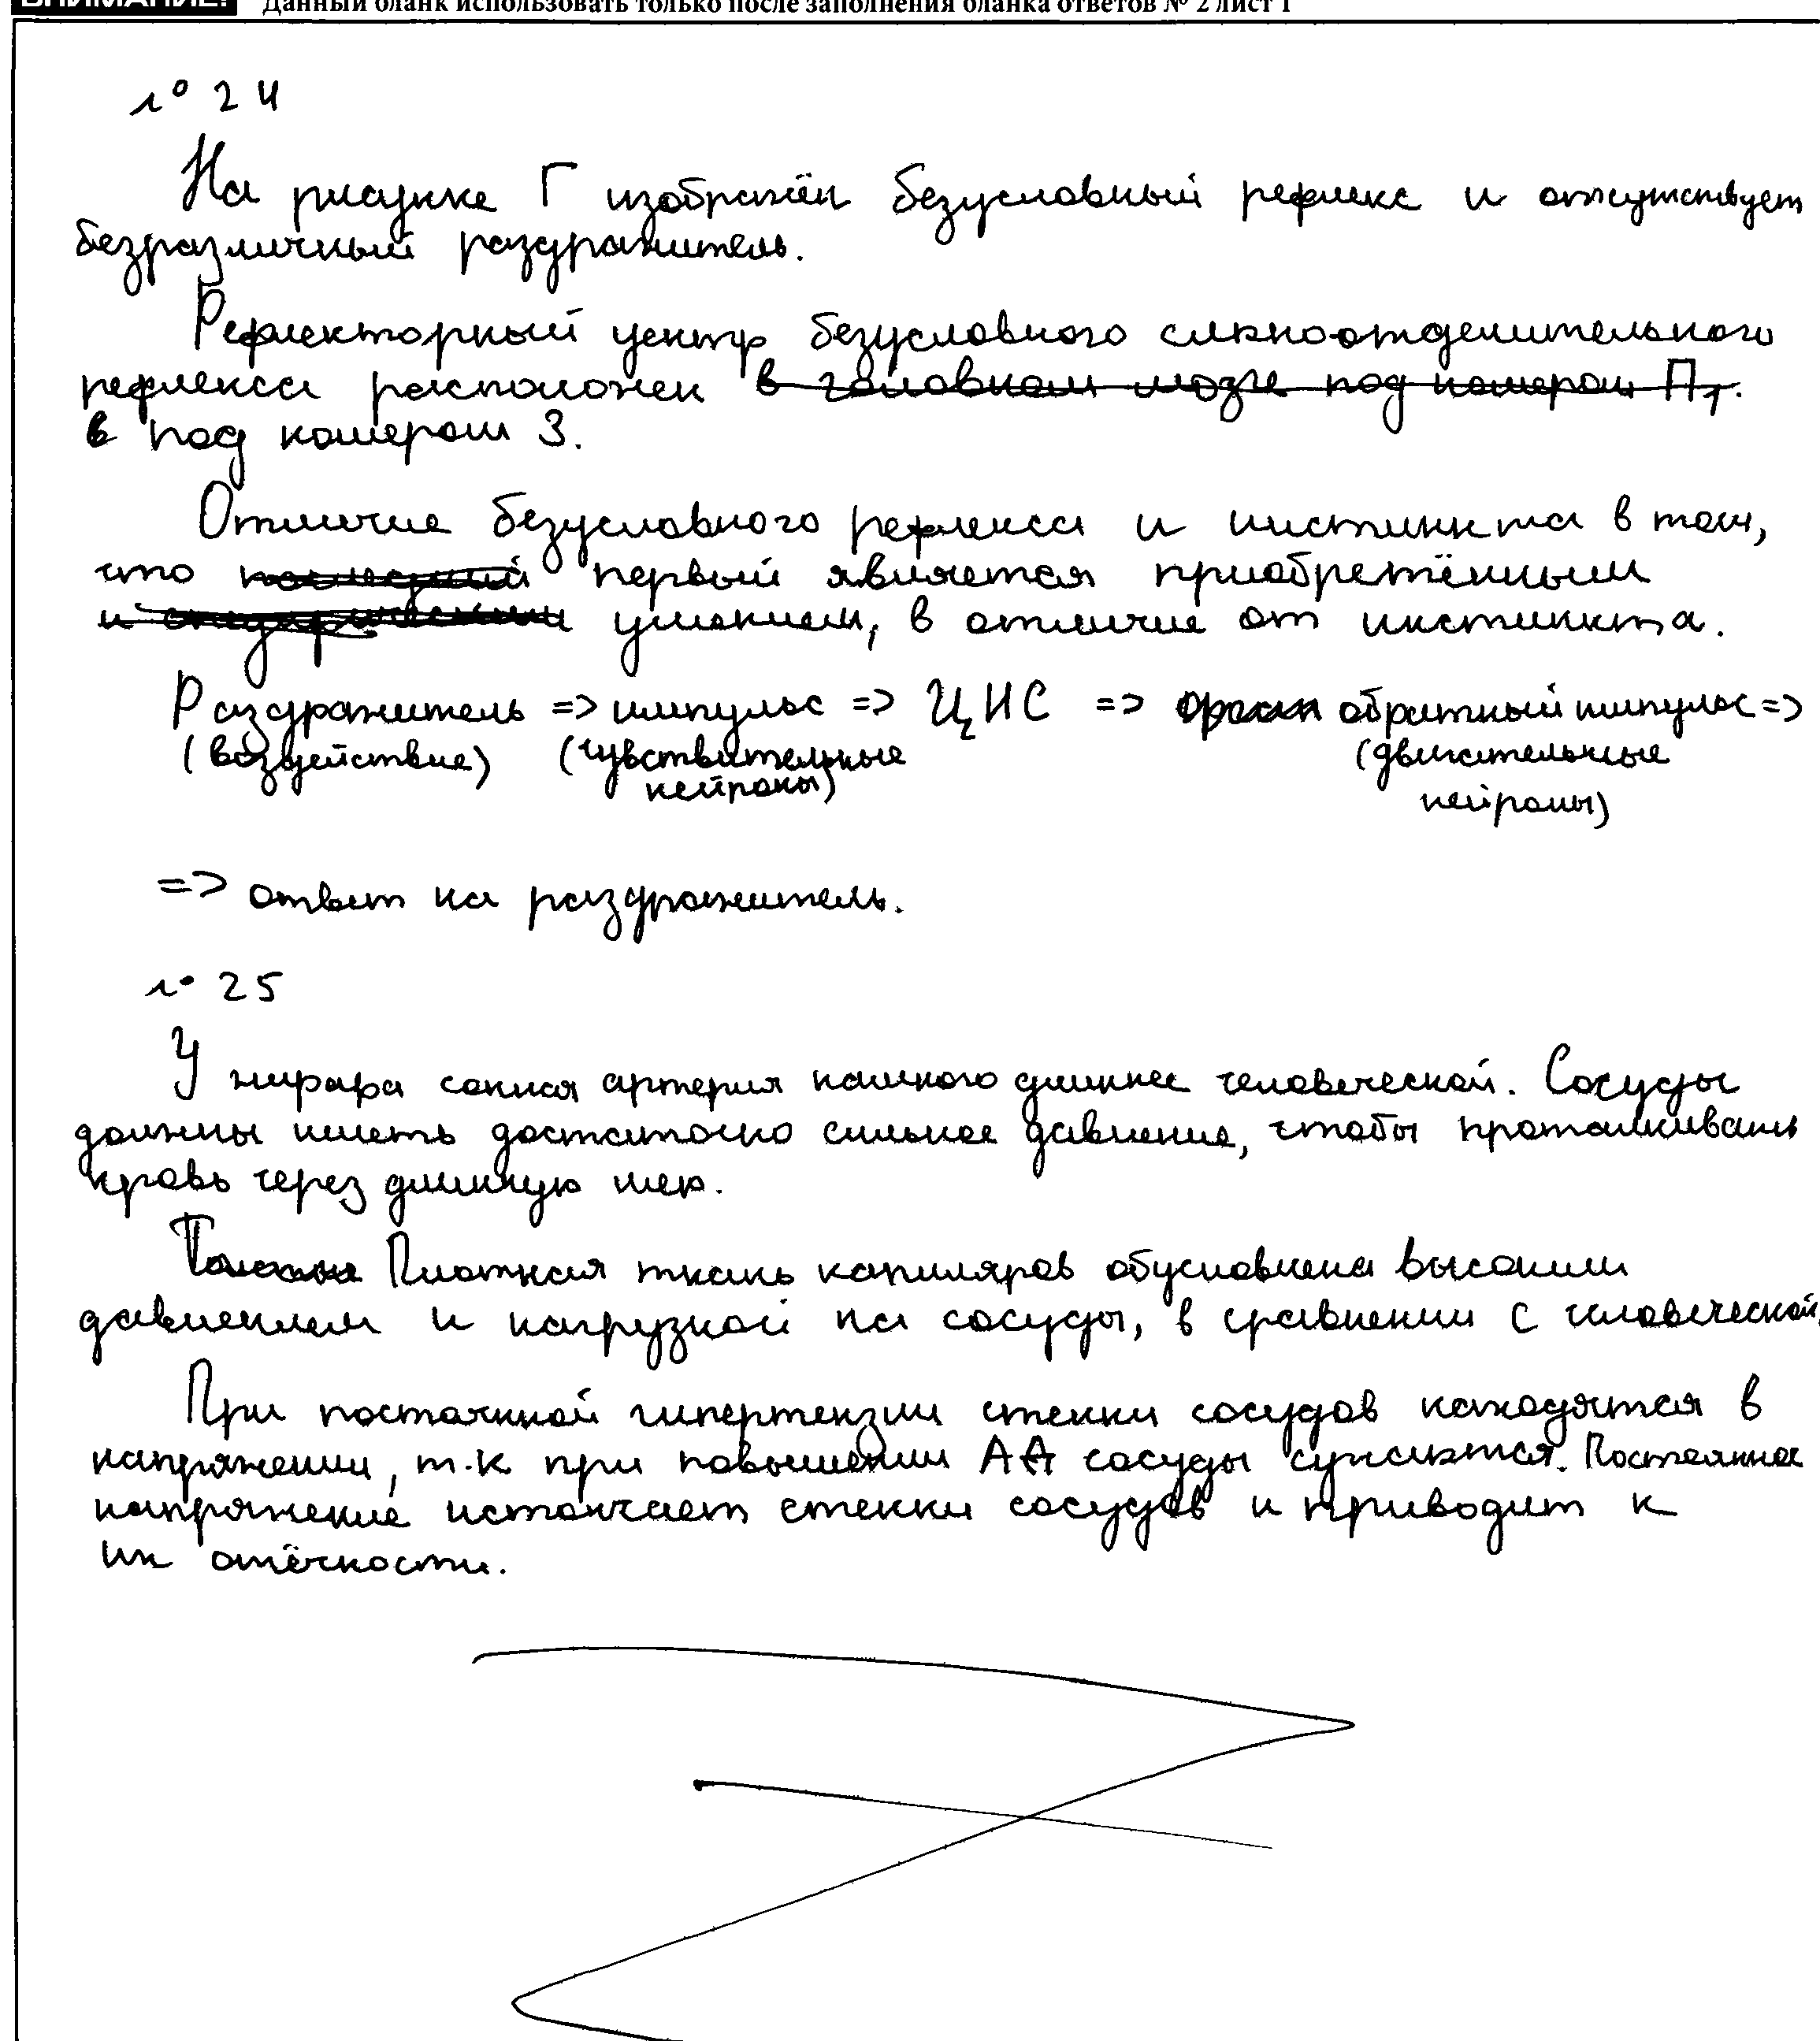 ВНИМАНИЕ! Данный бланк использовать только после заполнения бланка ответов № 2 лист 1
№ 24
На рисунке Г изображён безусловный рефлекс и отсутствует
безразличный раздражитель.
Рефлекторный центр безусловного слюноотделительного
рефлекса расположен в головном мозге под номером П1.
в под номером 3.
Отличие безусловного рефлекса и инстинкта в том,
что последний первый является приобретённым
и умением, в отличие от инстинкта.
Раздражитель => импульс => ЦНС => орган обратный импульс =>
(воздействие) (чувствительные (двигательные
нейроны) нейроны)
=> ответ на раздражитель.
№ 25
У жирафа сонная артерия намного длиннее человеческой. Сосуды
должны иметь достаточно сильное давление, чтобы проталкивать
кровь через длинную шею.
Плотная ткань капиляров обусловлена высоким
давлением и нагрузкой на сосуды, в сравнении с человеческой.
При постоянной гипертензии стенки сосудов находятся в
напряжении, т.к при повышении АД сосуды сужаются. Постоянное
напряжение истончает стенки сосудов и приводит к
их отёчности.